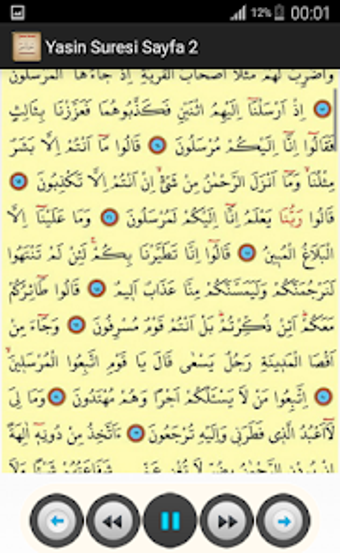 12% 00:01
Yasin Suresi Sayfa 2
وَاضْرِبْ لَهُمْ مَثَلًا اَصْحَابَ الْقَرْيَةِ اِذْ جَاءَهَا الْمُرْسَلُونَ
اِذْ اَرْسَلْنَٓا اِلَيْهِمُ اثْنَيْنِ فَكَذَّبُوهُمَا فَعَزَّزْنَا بِثَالِثٍ
فَقَالُٓوا اِنَّٓا اِلَيْكُمْ مُرْسَلُونَ قَالُوا مَٓا اَنْتُمْ اِلَّا بَشَرٌ
مِثْلُنَاۙ وَمَٓا اَنْزَلَ الرَّحْمٰنُ مِنْ شَيْءٍۙ اِنْ اَنْتُمْ اِلَّا تَكْذِبُونَ
قَالُوا رَبُّنَا يَعْلَمُ اِنَّٓا اِلَيْكُمْ لَمُرْسَلُونَ وَمَا عَلَيْنَٓا اِلَّا
الْبَلَاغُ الْمُبِينُ قَالُٓوا اِنَّا تَطَيَّرْنَا بِكُمْۚ لَئِنْ لَمْ تَنْتَهُوا
لَنَرْجُمَنَّكُمْ وَلَيَمَسَّنَّكُمْ مِنَّا عَذَابٌ اَلِيمٌ قَالُوا طَٓائِرُكُمْ
مَعَكُمْۜ اَئِنْ ذُكِّرْتُمْۜ بَلْ اَنْتُمْ قَوْمٌ مُسْرِفُونَ وَجَٓاءَ مِنْ
اَقْصَا الْمَدِينَةِ رَجُلٌ يَسْعٰى قَالَ يَا قَوْمِ اتَّبِعُوا الْمُرْسَلِينَۙ
اِتَّبِعُوا مَنْ لَا يَسْـَٔلُكُمْ اَجْرًا وَهُمْ مُهْتَدُونَ وَمَا لِيَ
لَٓا اَعْبُدُ الَّذِي فَطَرَنِي وَاِلَيْهِ تُرْجَعُونَ ءَاَتَّخِذُ مِنْ دُونِهٓ اٰلِهَةً
اِنْ يُرِدْنِ الرَّحْمٰنُ بِضُرٍّ لَا تُغْنِ عَنِّي شَفَاعَتُهُمْ شَيْـًٔا وَلَا